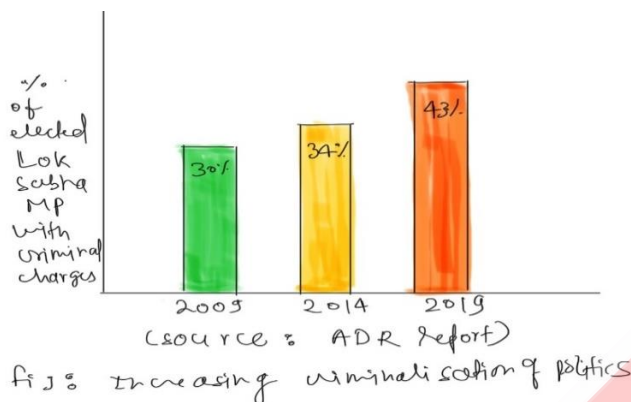 % .
of
elected
Lok
Sabha
MP
with
criminal
charges
30%
34%
43%
2009 2014 2019
(source : ADR report)
fig : Increasing criminalisation of politics